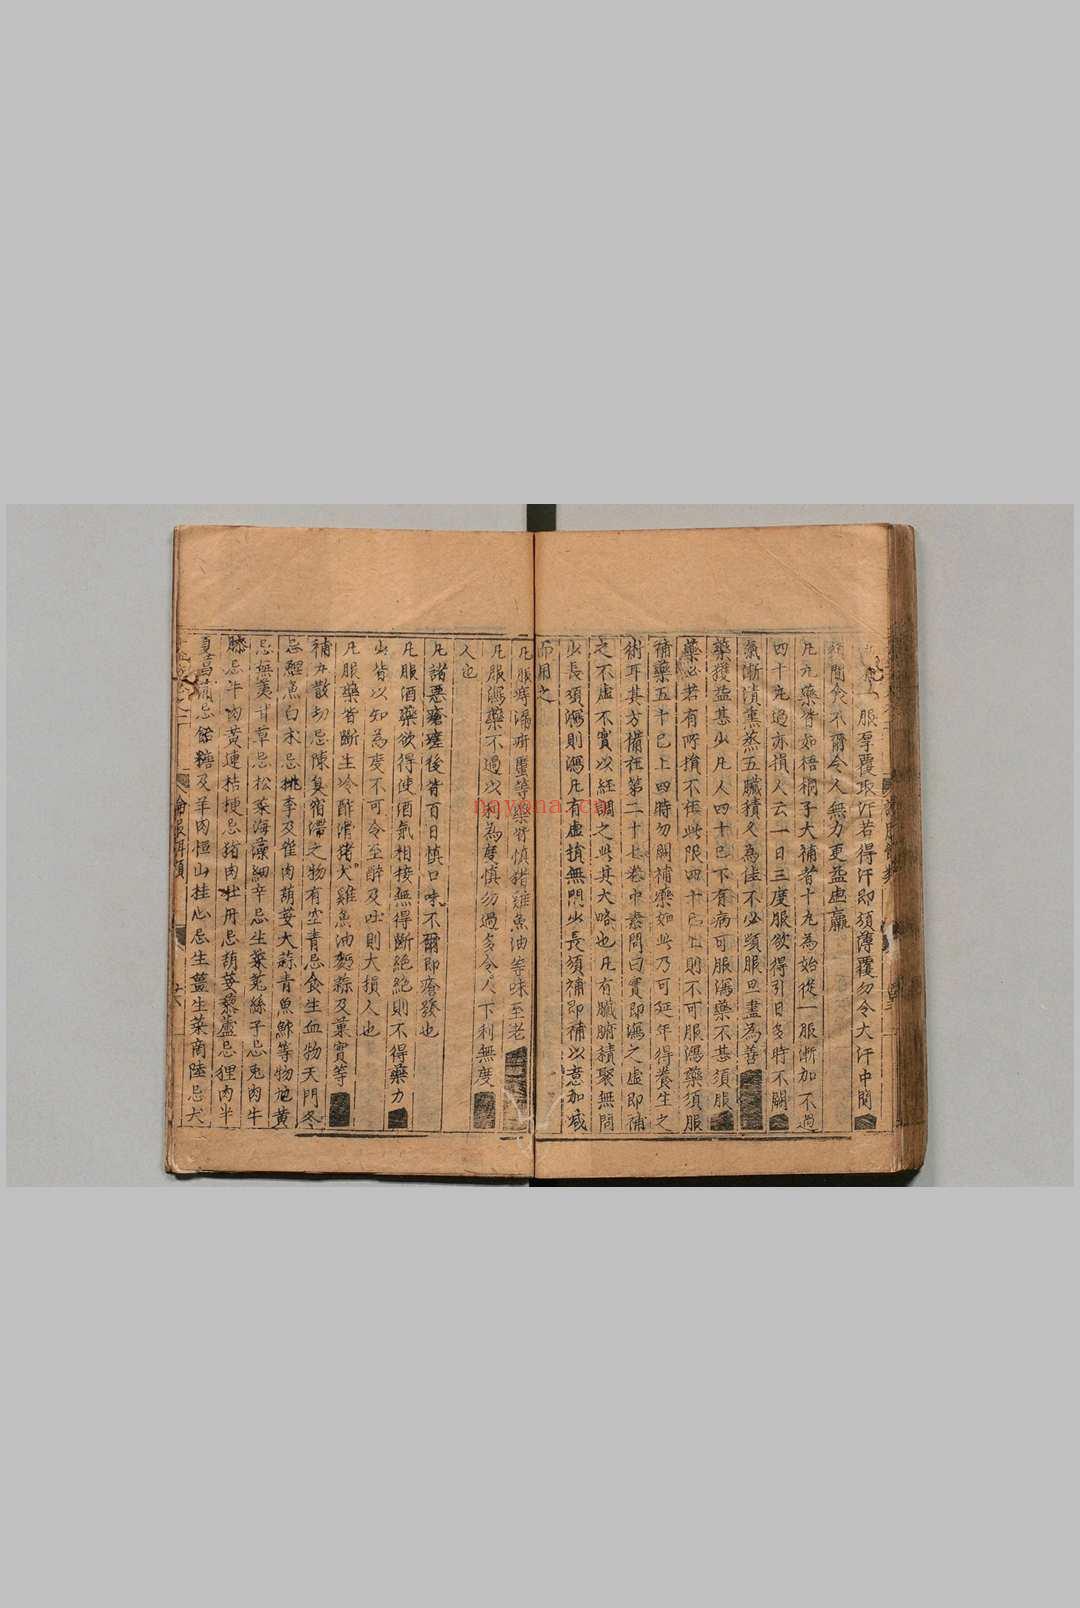 服厚覆取汗若得汗即須薄覆勿令大汗中間
間食不爾令人無力更益虚羸
凡丸藥皆如梧桐子大補者十丸為始從一服漸加不過
四十丸過亦損人云一日三度服欲得引日多時不闕
氣漸漬熏蒸五臟積久為佳不必頓服早盡為善
藥獲益甚少凡人四十已下有病可服瀉藥不甚須服
藥必若有所損不在此限四十已上則不可服瀉藥須服
補藥五十已上四時勿闕補藥如此乃可延年得養生之
術耳其方備在第二十七卷中素問曰實即瀉之虚即補
之不虚不實以經調之此其大略也凡有臟腑積聚無問
少長須瀉則瀉凡有虚損無問少長須補即補以意加減
而用之
凡服痔漏疳䘌等藥皆慎猪雞魚油等味至老
凡服瀉藥不過以利為度慎勿過多令人下利無度
人也
凡諸惡瘡瘥後皆百日慎口味不爾即瘡發也
凡服酒藥欲得使酒氣相接無得斷絶絶則不得藥力
少皆以知為度不可令至醉及吐則大損人也
凡服藥皆斷生冷酢滑猪犬雞魚油麵蒜及菓實等
補丸散切忌陳臭宿滯之物有空青忌食生血物天門冬
忌鯉魚白术忌桃李及雀肉葫荽大蒜青魚鮓等物地黄
忌蕪荑甘草忌菘菜海藻細辛忌生菜菟絲子忌兎肉牛
膝忌牛肉黄連桔梗忌猪肉牡丹忌葫荽藜蘆忌狸肉半
夏菖蒲忌飴糖及羊肉恒山桂心忌生葱生菜商陸忌犬
論服餌類
nayona.cn